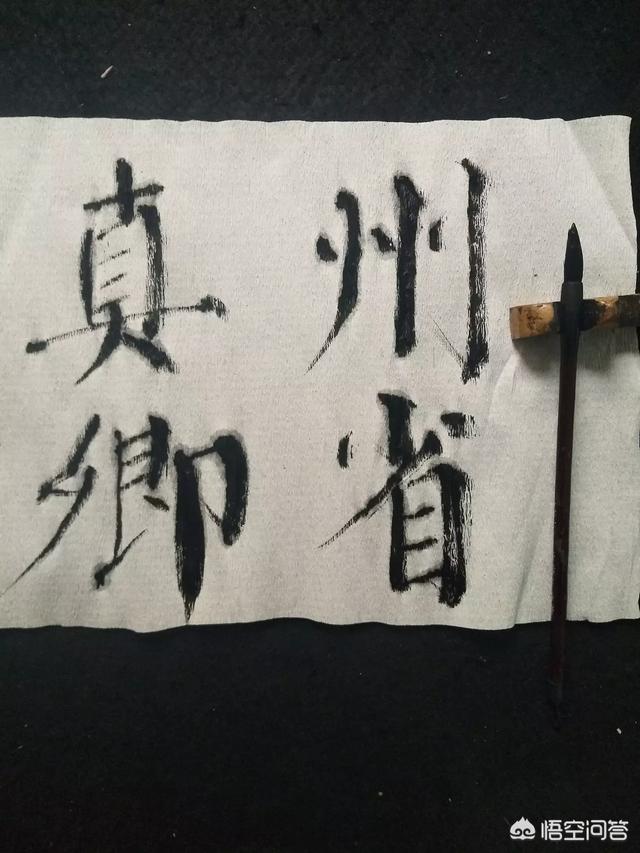 州省
真卿
悟空问答